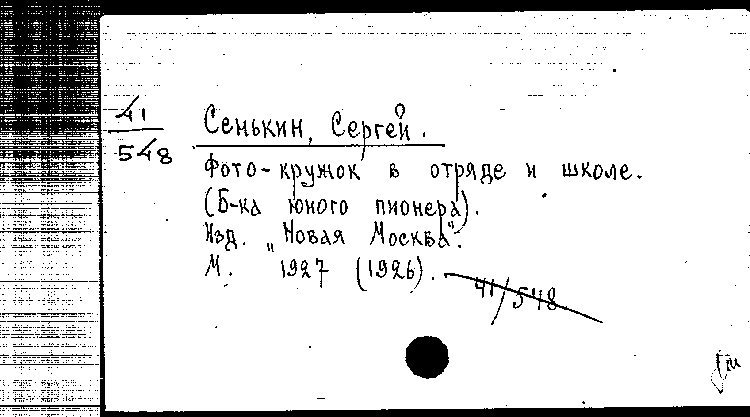 41
548
Сенькин, Сергей.
Фото-кружок в отряде и школе.
(Б-ка юного пионера).
Изд. „Новая Москва".
М. 1927 (1926).
41/548